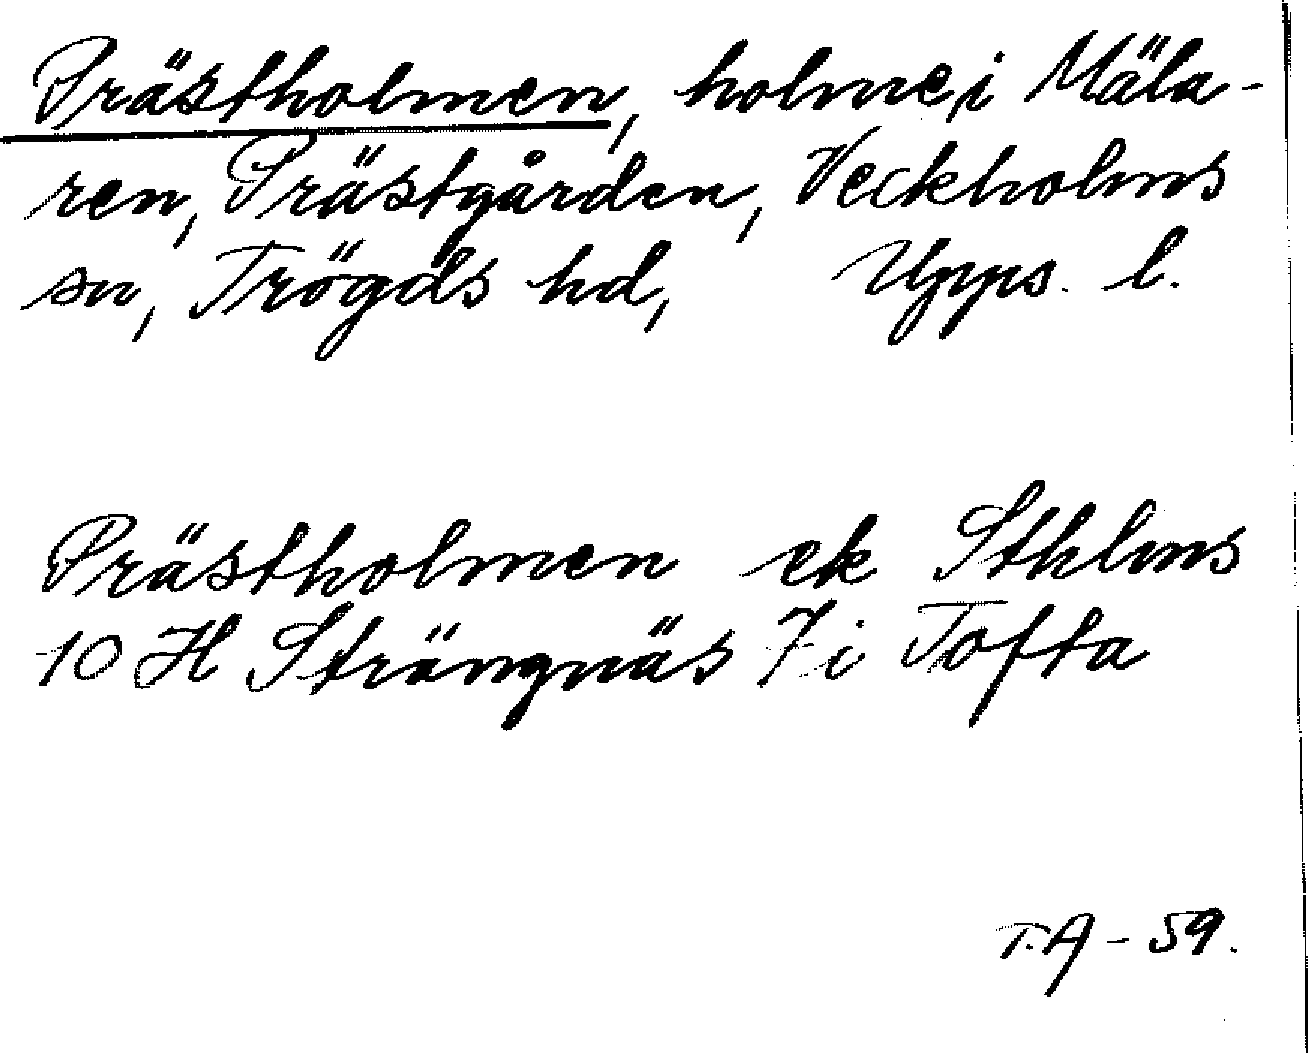 Prästholmen, holme, i Mäla-
ren, Prästgården, Veckholms
sn, Trögds hd, Upps. l.
Prästholmen ek Sthlms
10 H Strängnäs 7 i Tofta
T.A - 59.